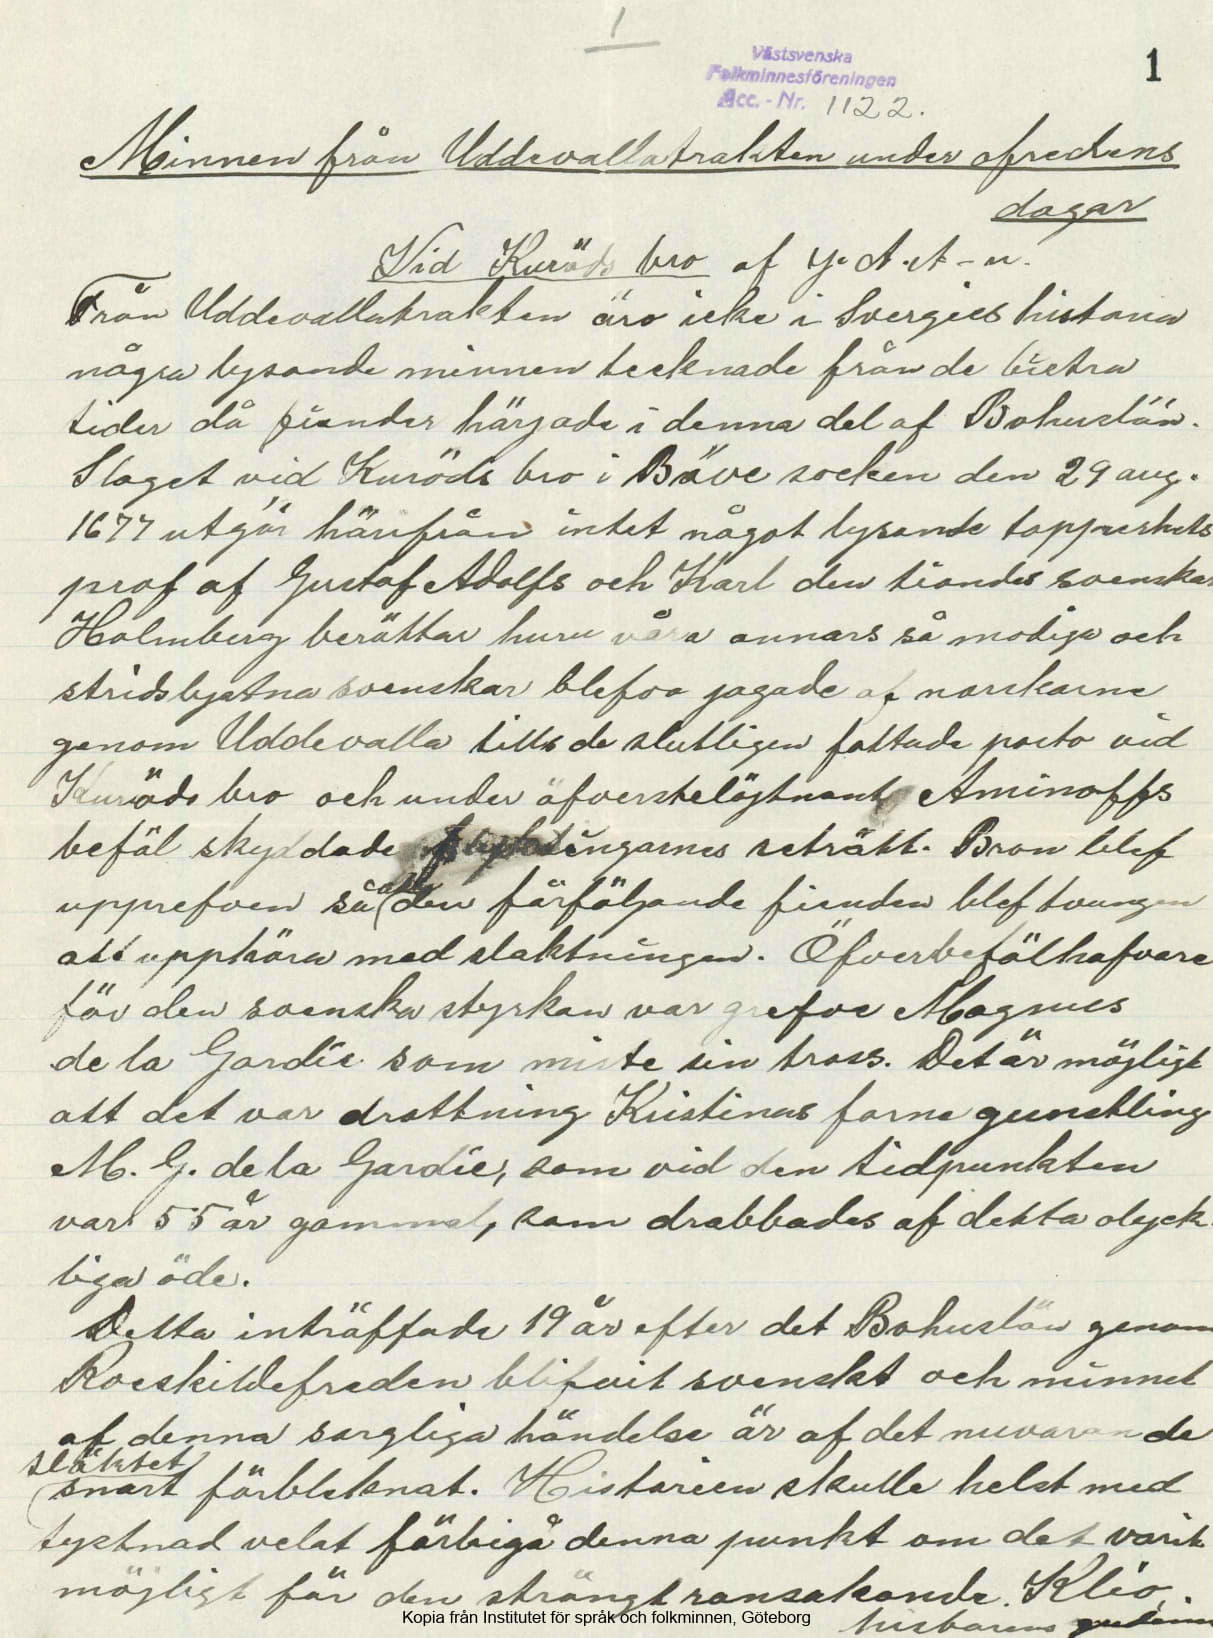 1
Västsvenska
Folkminnesföreningen
Acc.-Nr. 1122.
1
Minnen från Uddevallatrakten under ofredens
dagar
Vid Kuröds bro af
Från Uddevallatrakten äro icke i Sveriges historia
några lysande minnen tecknade från de bistra
tider då fiender härjade i denna del af Bohuslän.
Slaget vid Kuröds bro i Bäve socken den 29 aug.
1677 utgör härifrån intet något lysande tapperhets
prof af Gustaf Adolfs och Karl den tiondes svenskar
Holmberg berättar huru våra annars så modiga och
stridslystna svenskar blefvo jagade af norskarne
genom Uddevalla tills de slutligen fattade posto vid
Kuröds bro och under öfverstelöjtnant Aminoffs
befäl skyddade flyktingarnes reträtt. Bron blef
upprefven så att den förföljande fienden blef tvungen
att upphöra med slaktningen. Öfverbefälhafvare
för den svenska styrkan var grefve Magnus
de la Gardie som miste sin tross. Det är möjligt
att det var drottning Kristinas forne gunstling
M. G. de la Gardie, som vid den tidpunkten
var 55 år gammal, som drabbades af detta olyck-
liga öde.
Detta inträffade 19 år efter det Bohuslän genom
Roeskildefreden blifvit svenskt och minnet
af denna sorgliga händelse är af det nuvarande
släktet
snart förbleknat. Historien skulle helst med
tystnad velat förbigå denna punkt om det varit
möjligt för den strängt ransakande. Klio,
historiens gudinna
Kopia från Institutet för språk och folkminnen, Göteborg